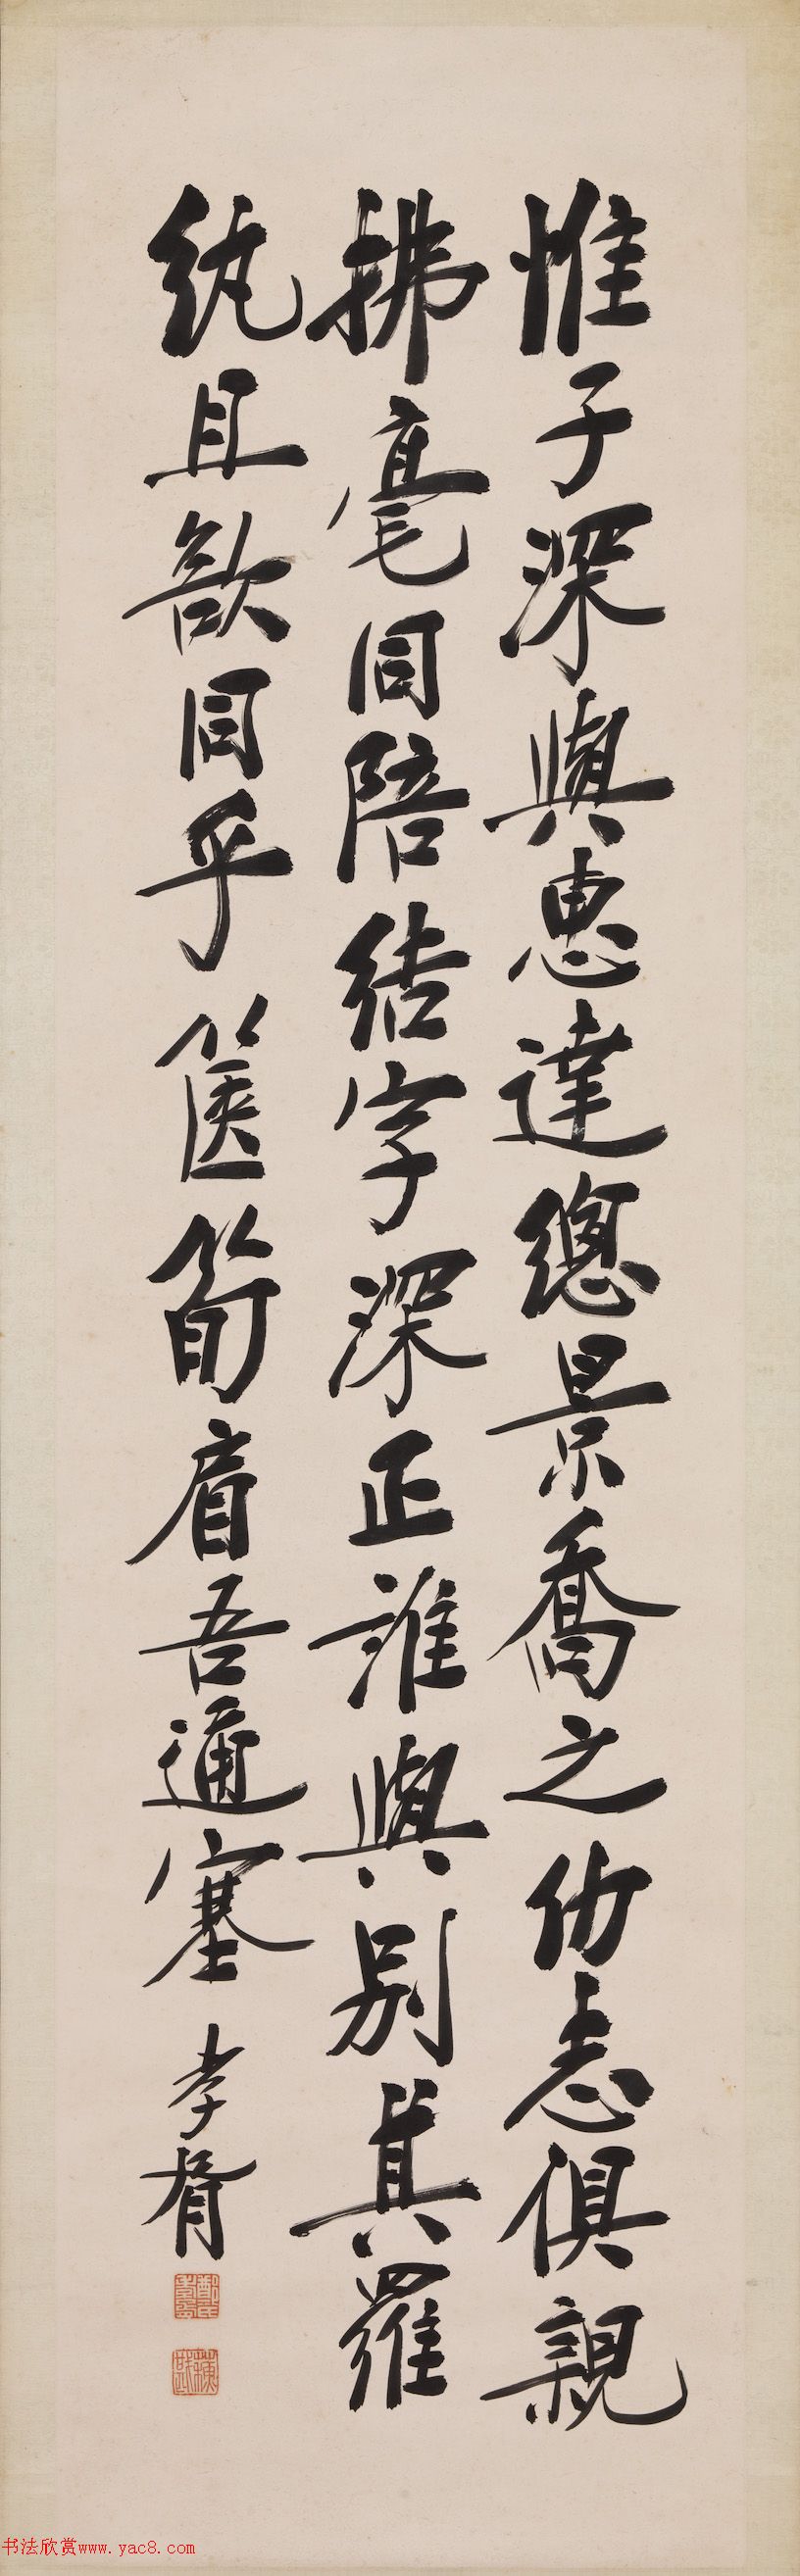 惟子深與惠達總景喬之俱親
拂毫同陪結字深正誰與別其羅
紈且歆同乎篋笥肩吾通塞
孝胥
书法欣赏www.yac8.com